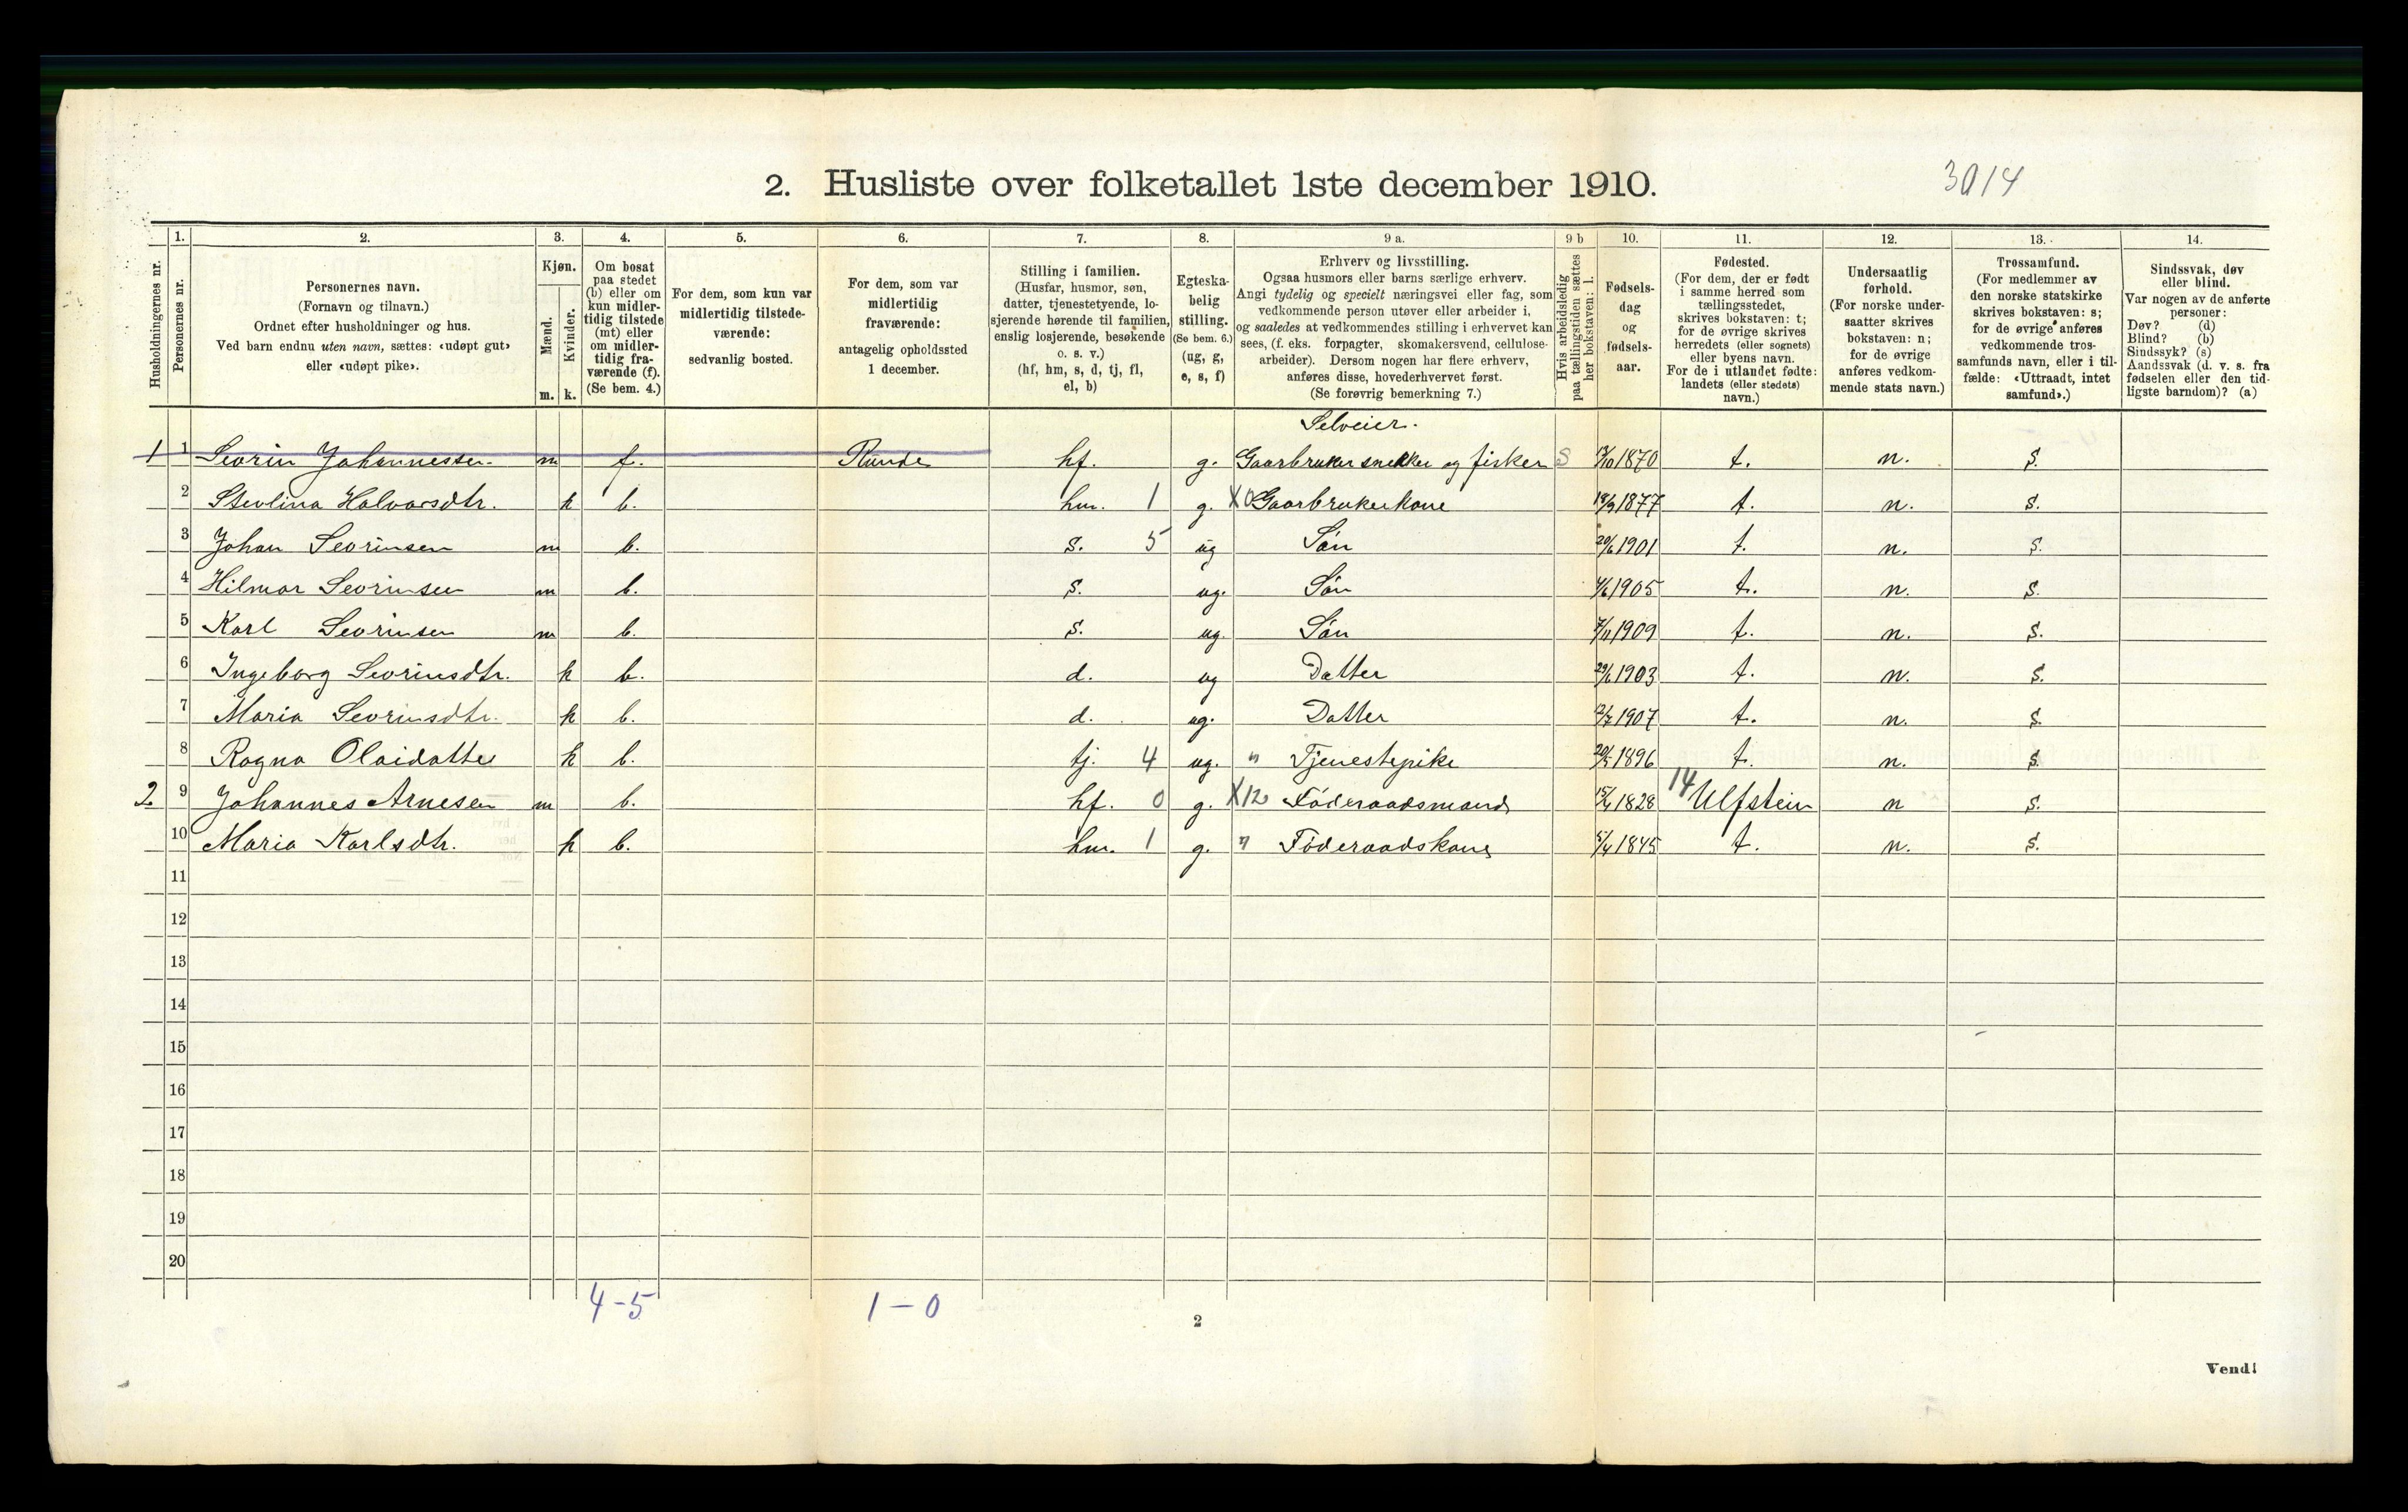 2. Husliste over folketallet 1ste december 1910.
3014
Husholdningernes nr.
1. Personernes nr.
2. Personernes navn. (Fornavn og tilnavn.) Ordnet efter husholdninger og hus. Ved barn endnu uten navn, sættes: «udøpt gut» eller «udøpt pike».
3. Kjøn. Mænd. m. Kvinder. k.
4. Om bosat paa stedet (b) eller om kun midlertidig tilstede (mt) eller om midlertidig fraværende (f). (Se bem. 4.)
5. For dem, som kun var midlertidig tilstedeværende: sedvanlig bosted.
6. For dem, som var midlertidig fraværende: antagelig opholdssted 1 december.
7. Stilling i familien. (Husfar, husmor, søn, datter, tjenestetyende, losjerende hørende til familien, enslig losjerende, besøkende o. s. v.) (hf, hm, s, d, tj, fl, el, b)
8. Egteskabelig stilling. (Se bem. 6.) (ug, g, e, s, f)
9 a. Erhverv og livsstilling. Ogsaa husmors eller barns særlige erhverv. Angi tydelig og specielt næringsvei eller fag, som vedkommende person utøver eller arbeider i, og saaledes at vedkommendes stilling i erhvervet kan sees, (f. eks. forpagter, skomakersvend, cellulosearbeider). Dersom nogen har flere erhverv, anføres disse, hovederhvervet først. (Se forøvrig bemerkning 7.)
9 b Hvis arbeidsledig paa tællingstiden sættes her bokstaven: l.
10. Fødselsdag og fødselsaar.
11. Fødested. (For dem, der er født i samme herred som tællingsstedet, skrives bokstaven: t; for de øvrige skrives herredets (eller sognets) eller byens navn. For de i utlandet fødte: landets (eller stedets) navn.)
12. Undersaatlig forhold. (For norske undersaatter skrives bokstaven: n; for de øvrige anføres vedkommende stats navn.)
13. Trossamfund. (For medlemmer av den norske statskirke skrives bokstaven: s; for de øvrige anføres vedkommende trossamfunds navn, eller i tilfælde: «Uttraadt, intet samfund».)
14. Sindssvak, døv eller blind. Var nogen av de anførte personer: Døv? (d) Blind? (b) Sindssyk? (s) Aandssvak (d. v. s. fra fødselen eller den tidligste barndom)? (a)
Selveier.
1 1 Sevrin Johannessen m f. Runde hf. g. Gaarbruker snekker og fisker S 1870 t. n. S.
2 Stevlina Halvorsdtr. k b. hm. 1 g. X0 Gaarbrukerkone 18/9 1877 t. n. S.
3 Johan Sevrinsen m b. s. 5 ug Søn 20/6 1901 t. n. S.
4 Hilmar Sevrinsen m b. s. ug. Søn 4/6 1905 t. n. S.
5 Karl Sevrinsen m b. s. ug. Søn 7/11 1909 t. n. S.
6 Ingeborg Sevrinsdtr. k b. d. ug Datter 29/6 1903 t. n. S.
7 Maria Sevrinsdtr. k b. d. ug. Datter 1907 t. n. S.
8 Ragna Olaidatter k b. tj. 4 ug. " Tjenestepike 20/5 1896 t. n. S.
2. 9 Johannes Arnesen m b. hf. 0 g. X12 Føderaadsmand 15/4 1828 14 Ulfstein n S.
10 Maria Karlsdtr. k b. hm. 1 g. " Føderaadskone 5/4 1845 t. n. S.
11
12
13
14
15
16
17
18
19
20
4-5 1-0
2
Vend!